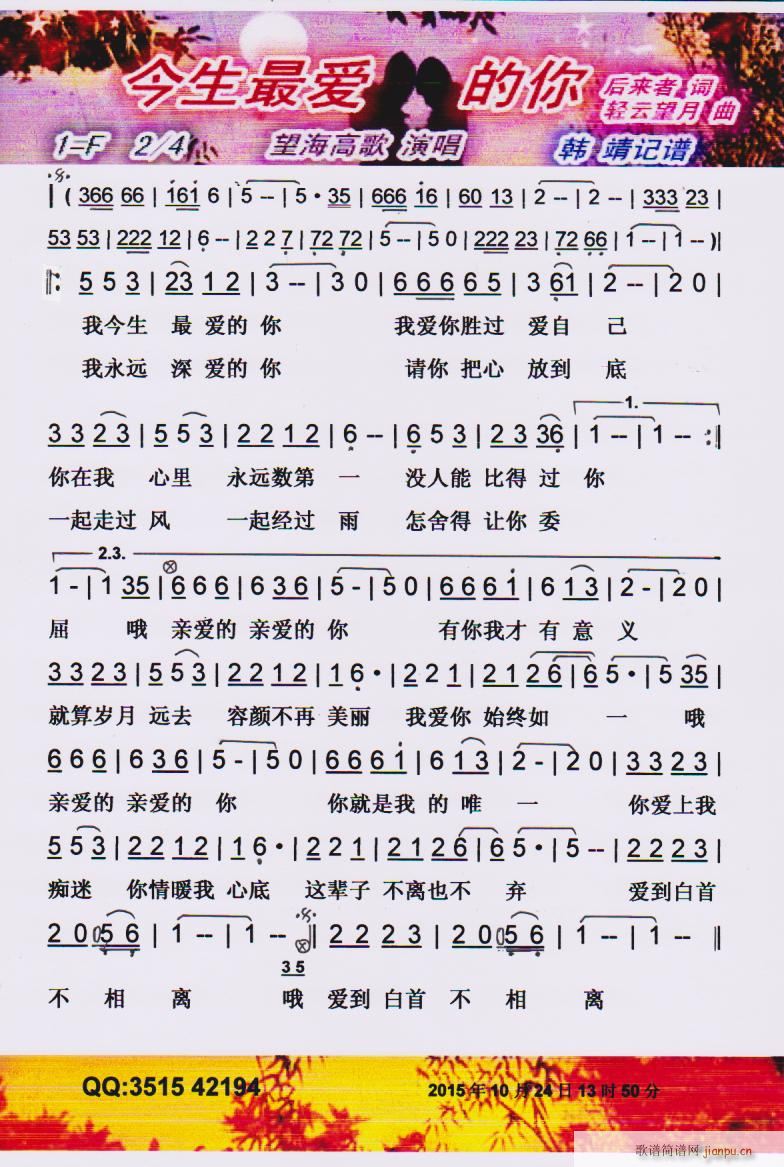 今生最爱的你
后来者 词
轻云望月 曲
1=F 2/4 望海高歌 演唱 韩 靖记谱
|( 366 66 | 161 6 | 5 -- | 5 · 35 | 666 16 | 60 13 | 2 -- | 2 -- | 333 23 |
53 53 | 222 12 | 6 -- | 2 2 7 | 72 72 | 5 -- | 5 0 | 222 23 | 72 66 | 1 -- | 1 -- )|
|: 5 5 3 | 23 1 2 | 3 -- | 3 0 | 6 6 6 6 5 | 3 61 | 2 -- | 2 0 |
我今生 最 爱的 你 我爱你胜过 爱自 己
我永远 深 爱的 你 请你 把心 放到 底
1.
3 3 2 3 | 5 5 3 | 2 2 1 2 | 6 -- | 6 5 3 | 2 3 36 | 1 -- | 1 -- :|
你在我 心里 永远数第 一 没人能 比得 过 你
一起走过 风 一起经过 雨 怎舍得 让你 委
2.3.
1 - | 1 35 | 6 6 6 | 6 3 6 | 5 - | 5 0 | 6 6 6 1 | 6 1 3 | 2 - | 2 0 |
屈 哦 亲爱的 亲爱的 你 有你我才 有 意 义
3 3 2 3 | 5 5 3 | 2 2 1 2 | 1 6 · | 2 2 1 | 2 1 2 6 | 6 5 · | 5 35 |
就算岁月 远去 容颜不再 美丽 我爱你 始终如 一 哦
6 6 6 | 6 3 6 | 5 - | 5 0 | 6 6 6 1 | 6 1 3 | 2 - | 2 0 | 3 3 2 3 |
亲爱的 亲爱的 你 你就是我 的 唯 一 你爱上我
5 5 3 | 2 2 1 2 | 1 6 · | 2 2 1 | 2 1 2 6 | 6 5 · | 5 -- | 2 2 2 3 |
痴迷 你情暖我 心底 这辈子 不离也不 弃 爱到白首
2 0 0 5 6 | 1 -- | 1 -- || 2 2 2 3 | 2 0 0 5 6 | 1 -- | 1 -- ||
3 5
不 相 离 哦 爱到 白首 不 相 离
QQ:3515 42194 2015 年 10 月 24 日 13 时 50 分
歌谱简谱网 jianpu.cn